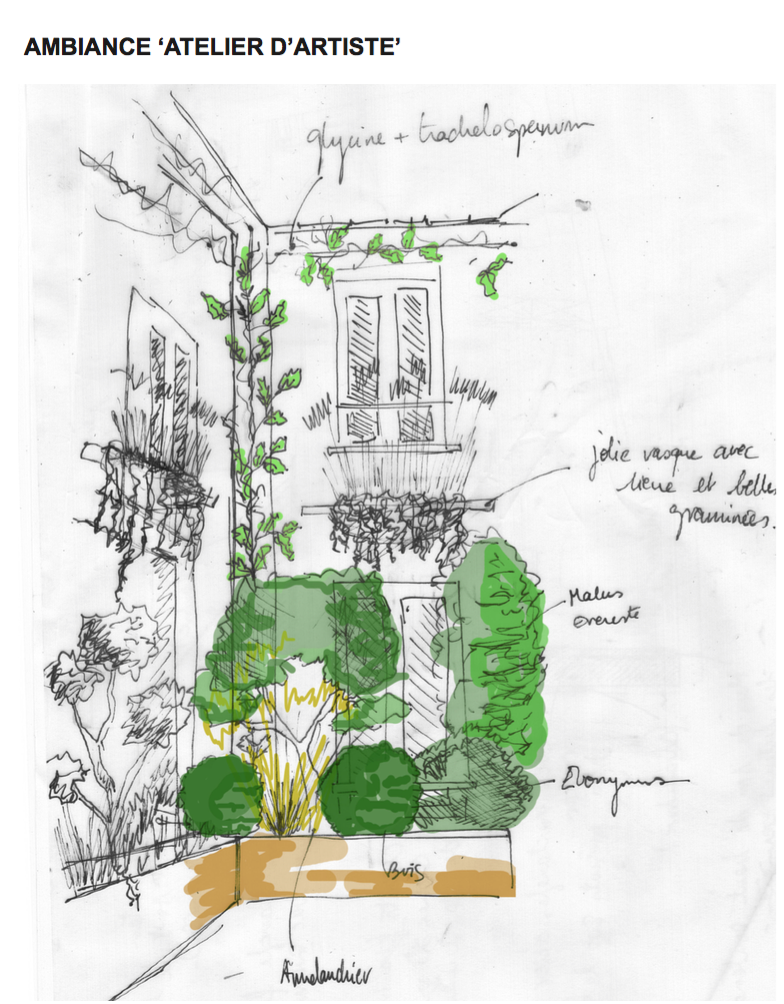 AMBIANCE ‘ATELIER D’ARTISTE’
glycine + trachelospermum
jolie vasque avec
lierre et belles
graminées.
Malus
evereste
Evonymus
Buis
Amelanchier